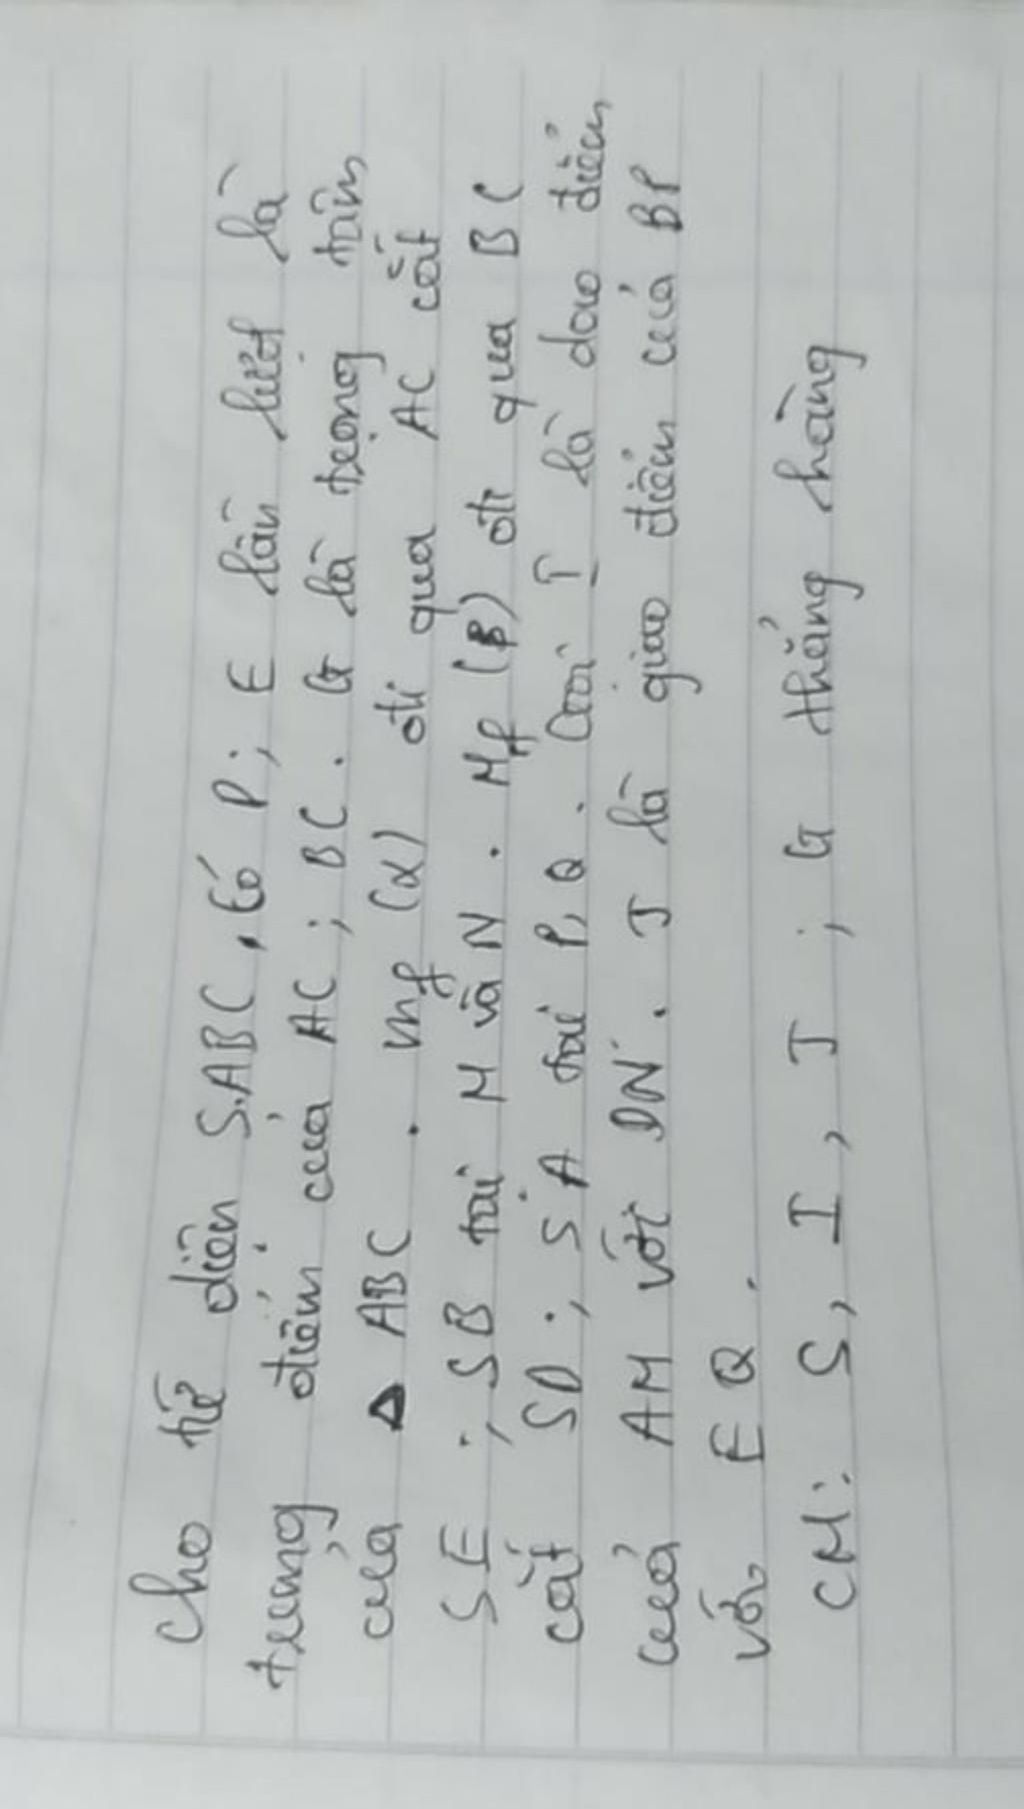 cho tứ diện S.ABC, có D; E lần lượt là
trung điểm của AC; BC. G là trọng tâm
của Δ ABC. mf (α) đi qua AC cắt
SE; SB tại M và N. Mf (β) đi qua BC
cắt SD; SA tại P, Q. Gọi I là dao điểm
của AM với DN. J là giao điểm của BP
với EQ.
CM: S, I, J; G thẳng hàng